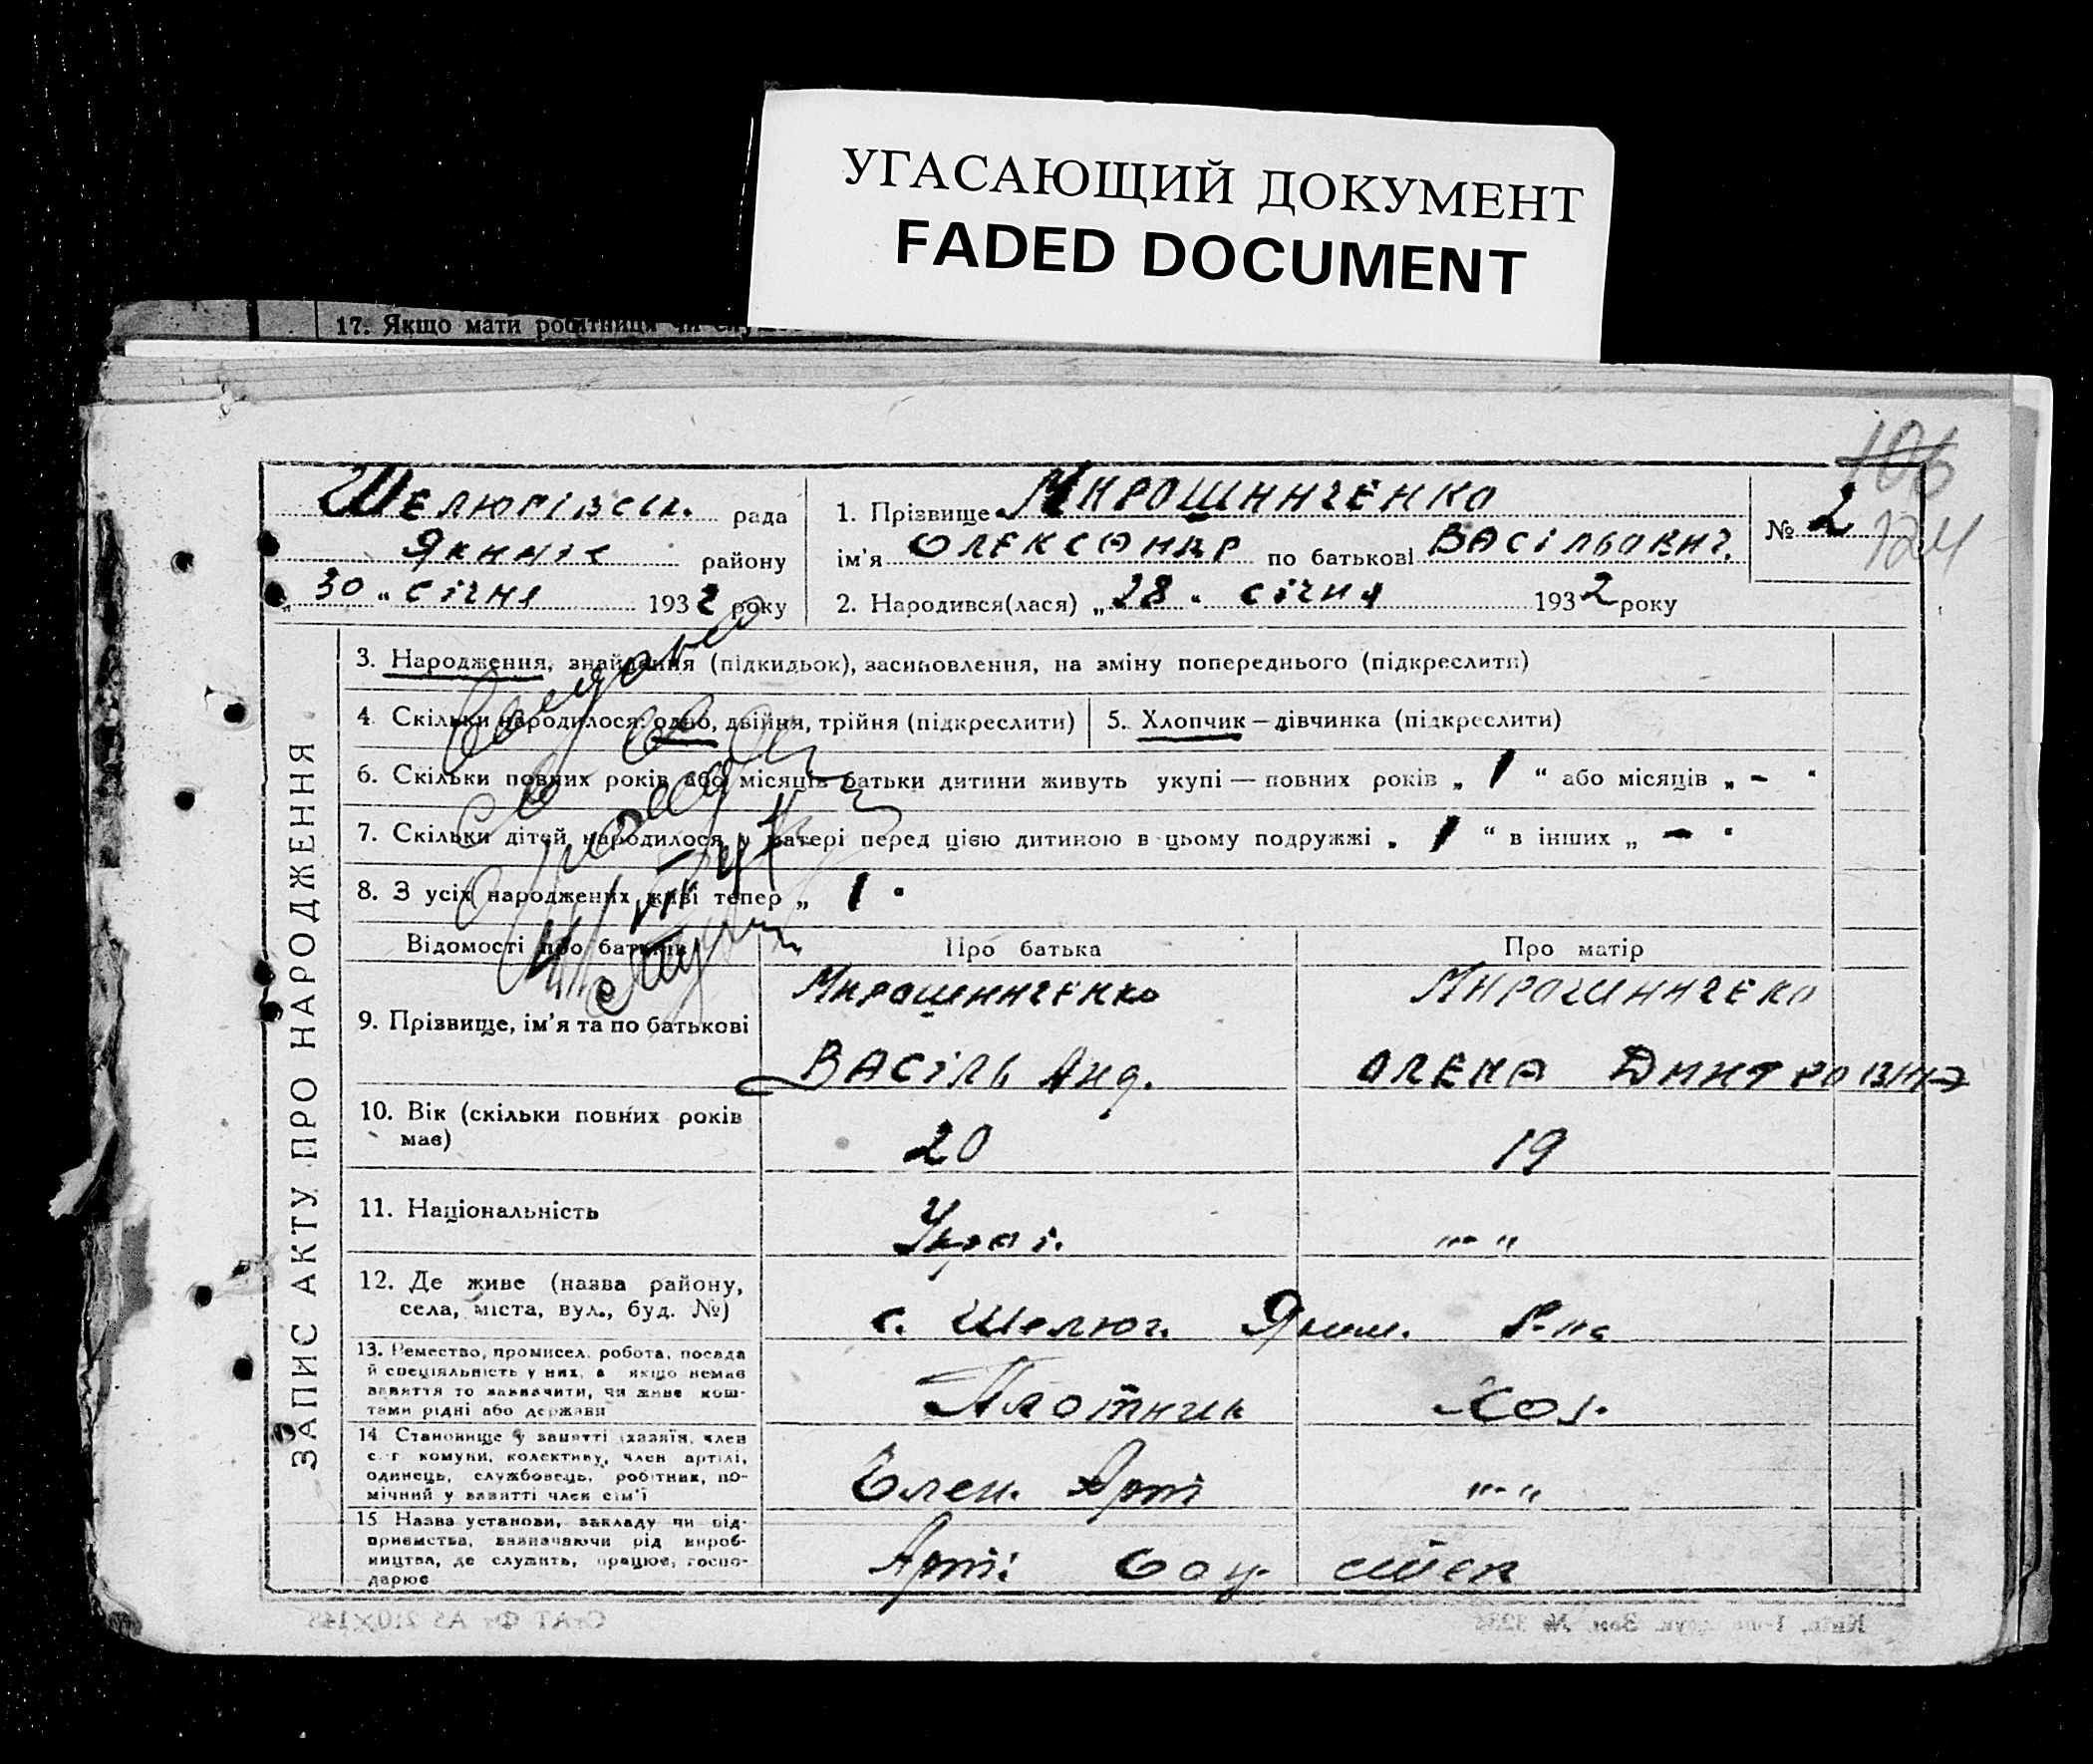 УГАСАЮЩИЙ ДОКУМЕНТ
FADED DOCUMENT
17. Якщо мати робітниця чи
106
124
Шелюгівск. рада
району
„30" січня 1932 року
1. Прізвище Мирошинченко
ім'я Олександр по батькові Васільович.
№ 2
2. Народився(лася) „28" січня 1932 року
ЗАПИС АКТУ ПРО НАРОДЖЕННЯ
3. Народження, знайдення (підкидьок), засиновлення, на зміну попереднього (підкреслити)
4. Скільки народилося: одно, двійня, трійня (підкреслити)
5. Хлопчик — дівчинка (підкреслити)
6. Скільки повних років або місяців батьки дитини живуть укупі — повних років „ 1 “ або місяців „ - "
7. Скільки дітей народилося у матері перед цією дитиною в цьому подружжі „ 1 “ в інших „ - "
8. З усіх народжених живі тепер „ 1 "
Відомості про батьків
Про батька
Про матір
9. Прізвище, ім'я та по батькові
Мирошинченко
Васіль Анд.
Мирошинчеко
Олена Дмитровна
10. Вік (скільки повних років має)
20
19
11. Національність
Украї.
"-"
12. Де живе (назва району,
села, міста, вул., буд. №)
с. Шелюг. Яким. Р-на
13. Ремество, промисел, робота, посада
й спеціяльність у них, а якщо немає
заняття то зазначити, чи живе кош-
тами рідні або держави
Плотник
14. Становище у занятті (хазяїн, член
с.-г комуни, колективу, член артілі,
одинець, службовець, робітник, по-
мічний у занятті член сім'ї
Член. Арт
"-"
15 Назва установи, закладу чи під-
приємства, зазначаючи рід вироб-
ництва, де служить, працює, госпо-
дарює
Арті Соц. степ